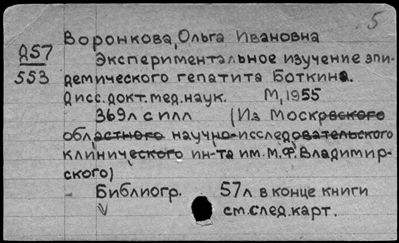 5
Д57
553
Воронкова, Ольга Ивановна
Экспериментальное изучение эпи-
демического гепатита Боткина.
Дисс. докт. мед. наук. М, 1955
369л с илл (Из Московского
областного научно-исследовательского
клинического ин-та им. М.Ф. Владимир-
ского)
Библиогр. 57л в конце книги
см. след. карт.